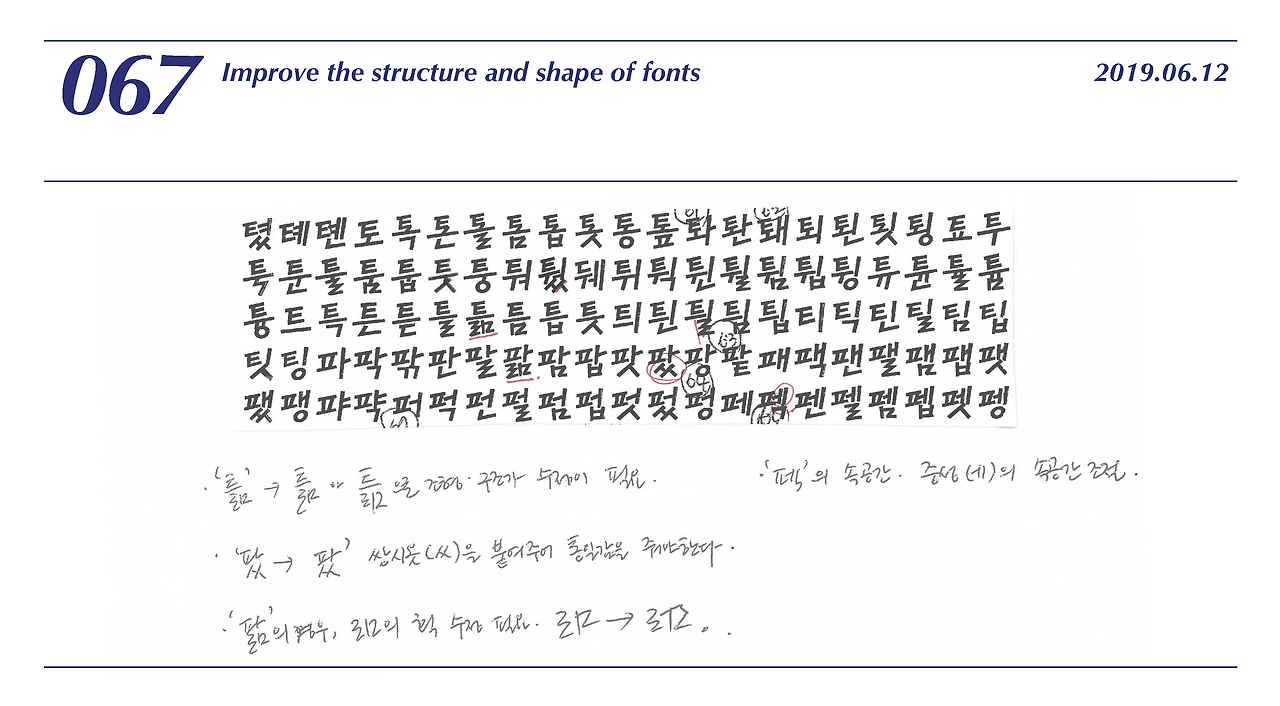 067
Improve the structure and shape of fonts
2019.06.12
텼 톄 톈 토 톡 톤 톨 톰 톱 톳 통 톺 톼 퇀 퇘 퇴 퇸 툇 툉 툐 투
툭 툰 툴 툼 툽 툿 퉁 퉈 퉜 퉤 튀 튁 튄 튈 튐 튑 튕 튜 튠 튤 튬
튱 트 특 튼 튿 틀 틂 틈 틉 틋 틔 틘 틜 틤 틥 티 틱 틴 틸 팀 팁
팃 팅 파 팍 팎 판 팔 팖 팜 팝 팟 팠 팡 팥 패 팩 팬 팰 팸 팹 팻
팼 팽 퍄 퍅 퍼 퍽 펀 펄 펌 펍 펏 펐 펑 페 펙 펜 펠 펨 펩 펫 펭
61
62
63
64
·'틂' → 틂 이 틂 으로 조형·구조가 수정이 필요.
·'펙'의 속공간. 중성(ㅔ)의 속공간 조절.
· '팠 → 팠' 쌍시옷(ㅆ)을 붙여주어 통일감을 주어야한다.
·'팖'의 경우, ㄹㅁ의 획 수정 필요. ㄹㅁ → ㄹㅁ.